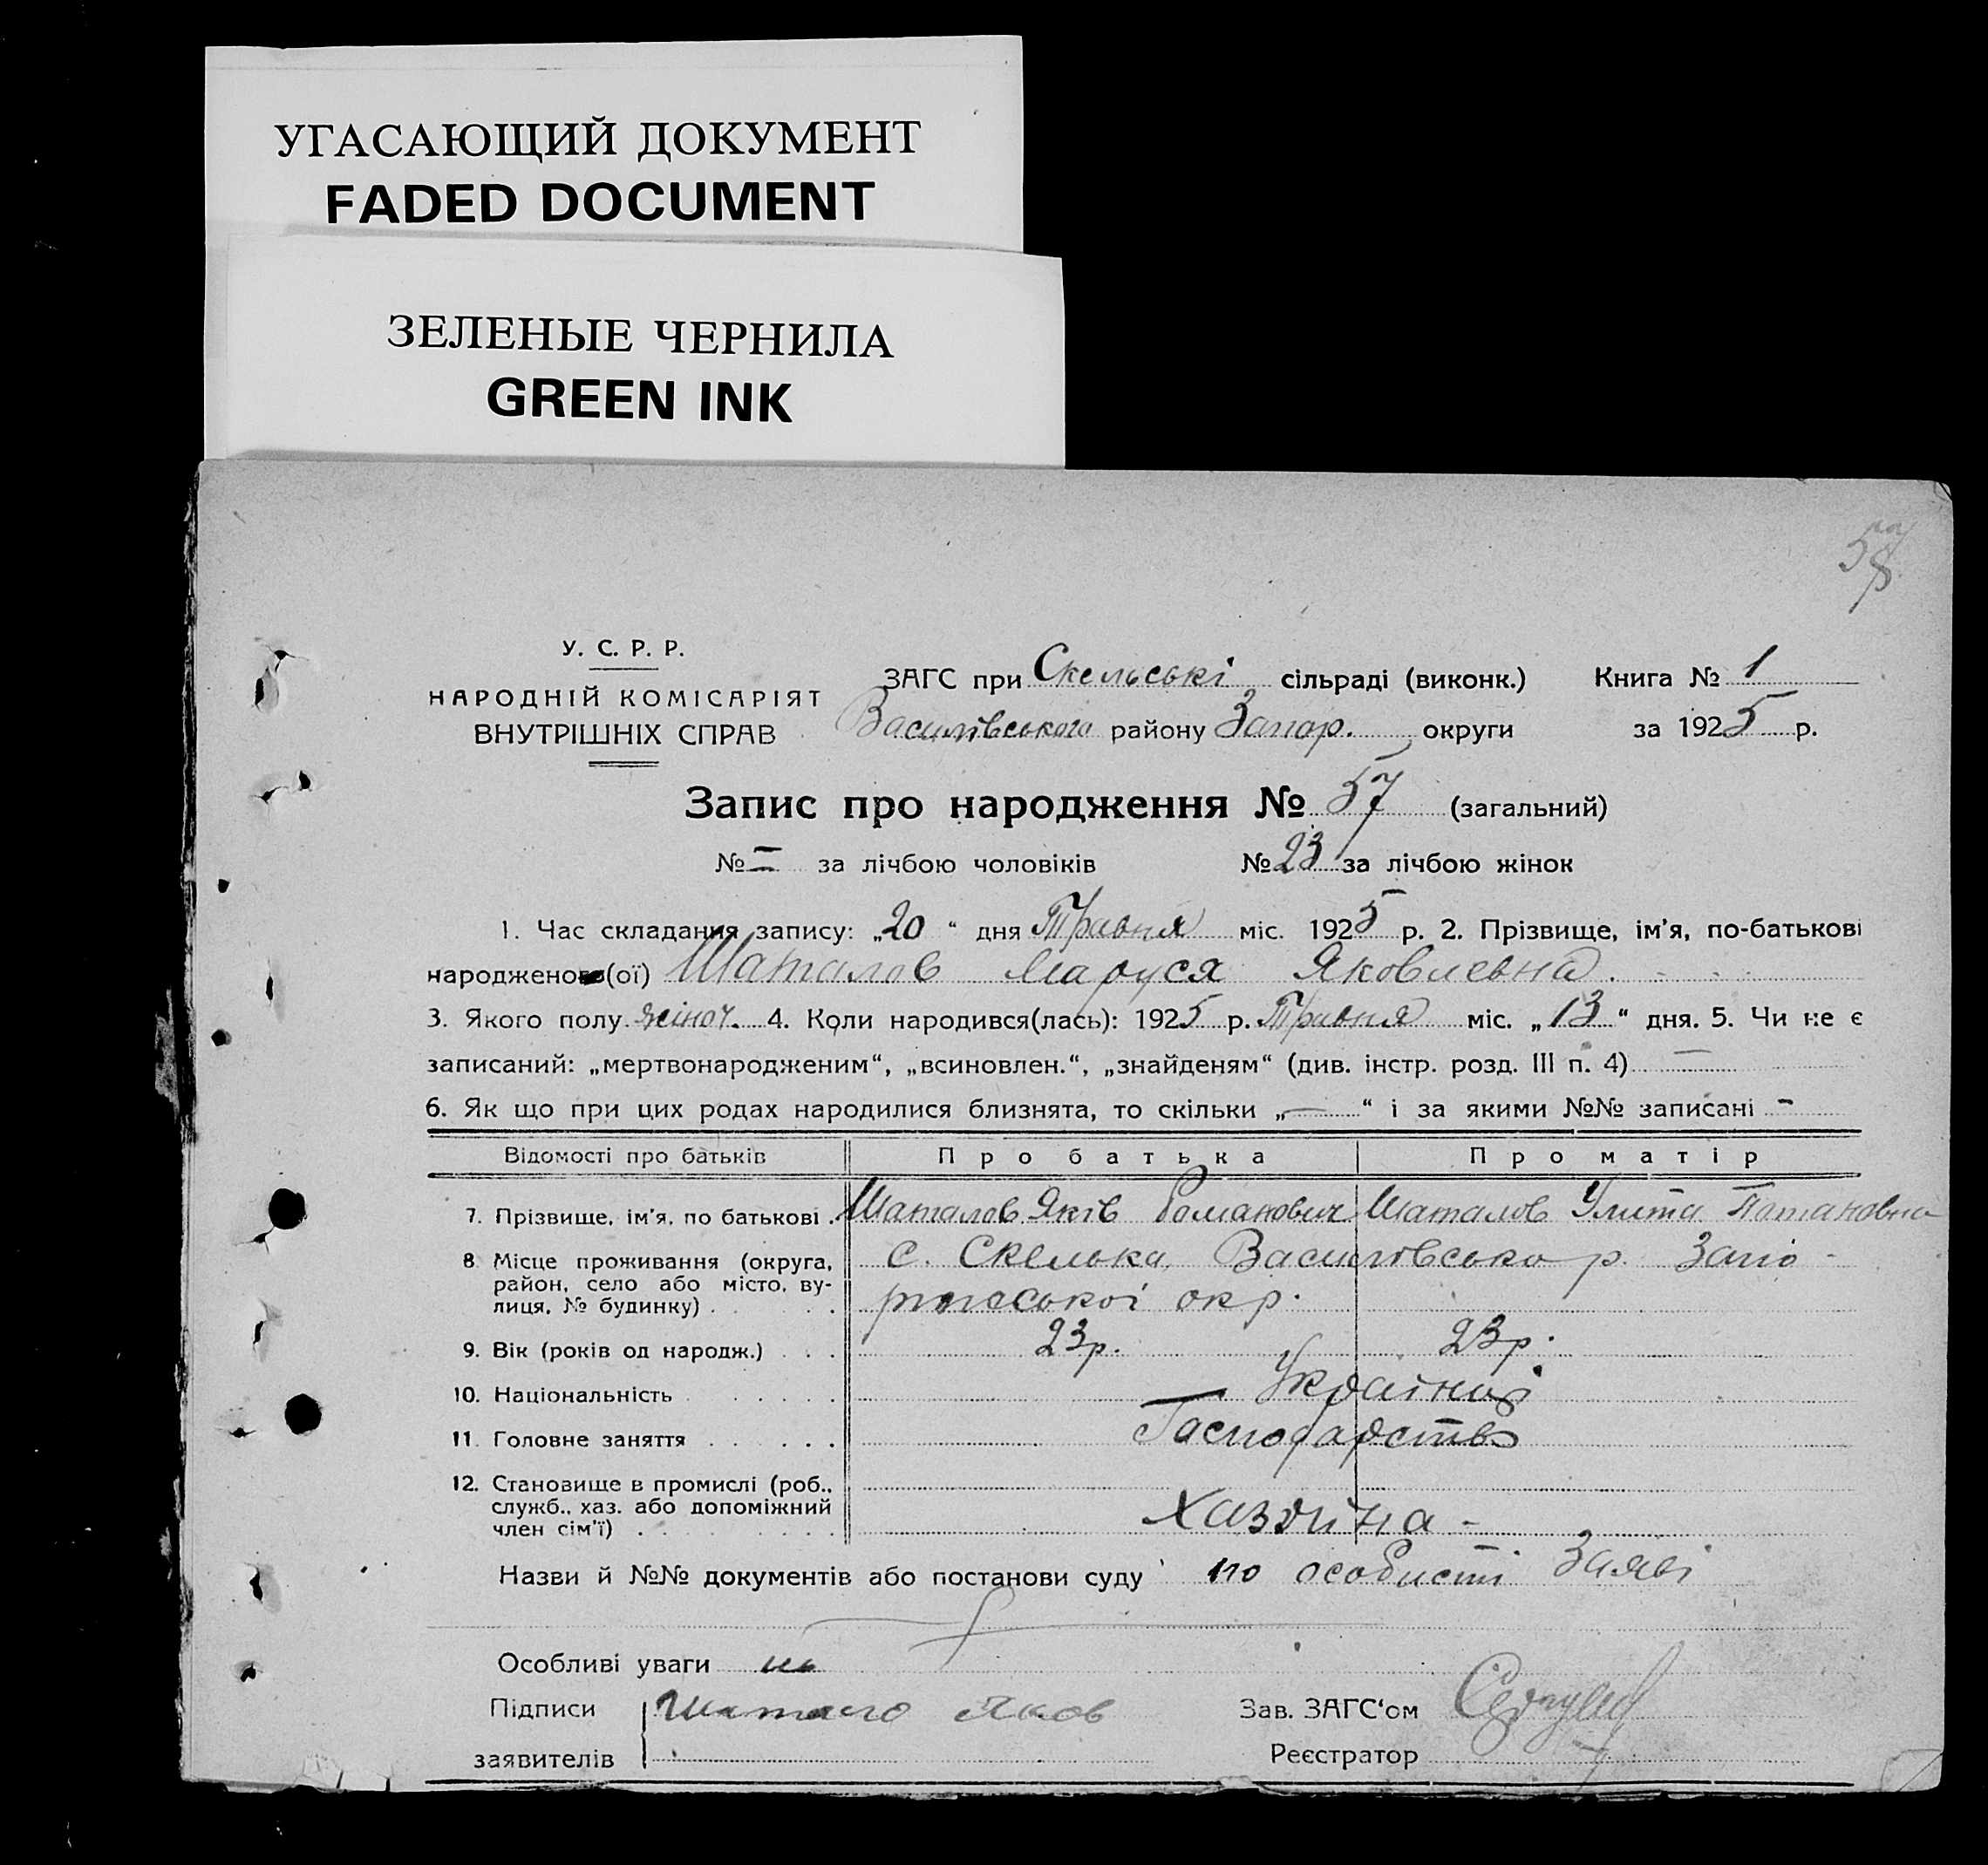 УГАСАЮЩИЙ ДОКУМЕНТ
FADED DOCUMENT
ЗЕЛЕНЫЕ ЧЕРНИЛА
GREEN INK
58
У. С. Р. Р.
НАРОДНІЙ КОМІСАРІЯТ
ВНУТРІШНІХ СПРАВ
ЗАГС при Скельські сільраді (виконк.) Книга № 1
Василівського району Запор. округи за 1925 р.
Запис про народження № 57 (загальний)
№ = за лічбою чоловіків № 23 за лічбою жінок
1. Час складання запису: „20“ дня Травня міс. 1925 р. 2. Прізвище, ім'я, по-батькові
народженого(ої) Шаталов Маруся Яковлевна.
3. Якого полу жіноч. 4. Коли народився(лась): 1925 р. Травня міс. „13“ дня. 5. Чи не є
записаний: „мертвонародженим“, „всиновлен.“, „знайденям“ (див. інстр. розд. III п. 4) —
6. Як що при цих родах народилися близнята, то скільки „—“ і за якими №№ записані -
Відомості про батьків Про батька Про матір
7. Прізвище, ім'я, по батькові . Шаталов Яків Романович Шаталов Улита Потаповна
8 Місце проживання (округа, район, село або місто, вулиця, № будинку) . с. Скелька, Василівсько р. Запо-
окр.
9. Вік (років од народж.) . . . 23р. 23р.
10. Національність . . . . . Україньці
11. Головне заняття . . . . . Господарство
12. Становище в промислі (роб., служб., хаз. або допоміжний член сім'ї) . Хазяїна -
Назви й №№ документів або постанови суду по особисті заяві
Особливі уваги
Підписи Яков Зав. ЗАГС'ом
заявителів Реєстратор